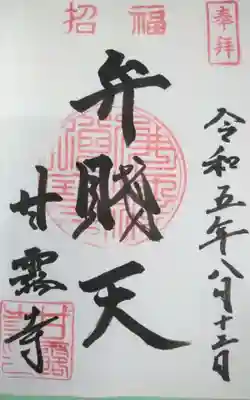 招福
奉拝
令和五年八月十二日
弁財天
甘露寺